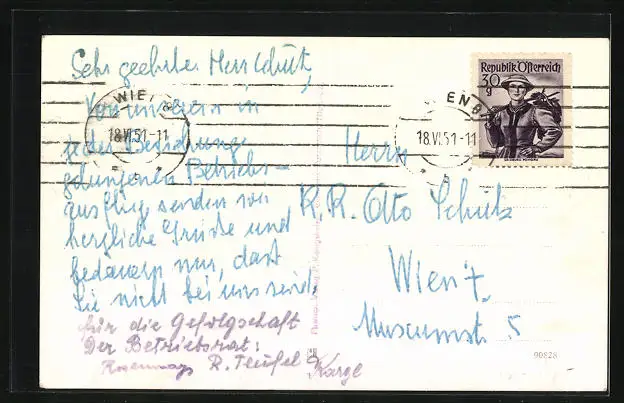 Sehr geehrter Herr Schutz,
Von unserem in
jeder Beziehung
gelungenen Betriebs-
ausflug senden wir
herzliche Grüsse und
bedauern nur, dass
Sie nicht bei uns sind.
für die Gefolgschaft
Der Betriebsrat:
R. Teufel
Kargl
WIEN
18.VI.51-11
WIEN
18.VI.51-11
Republik Österreich
30
g
Herrn
K.R. Otto Schutz
Wien 7.
Museumstr. 5
90828